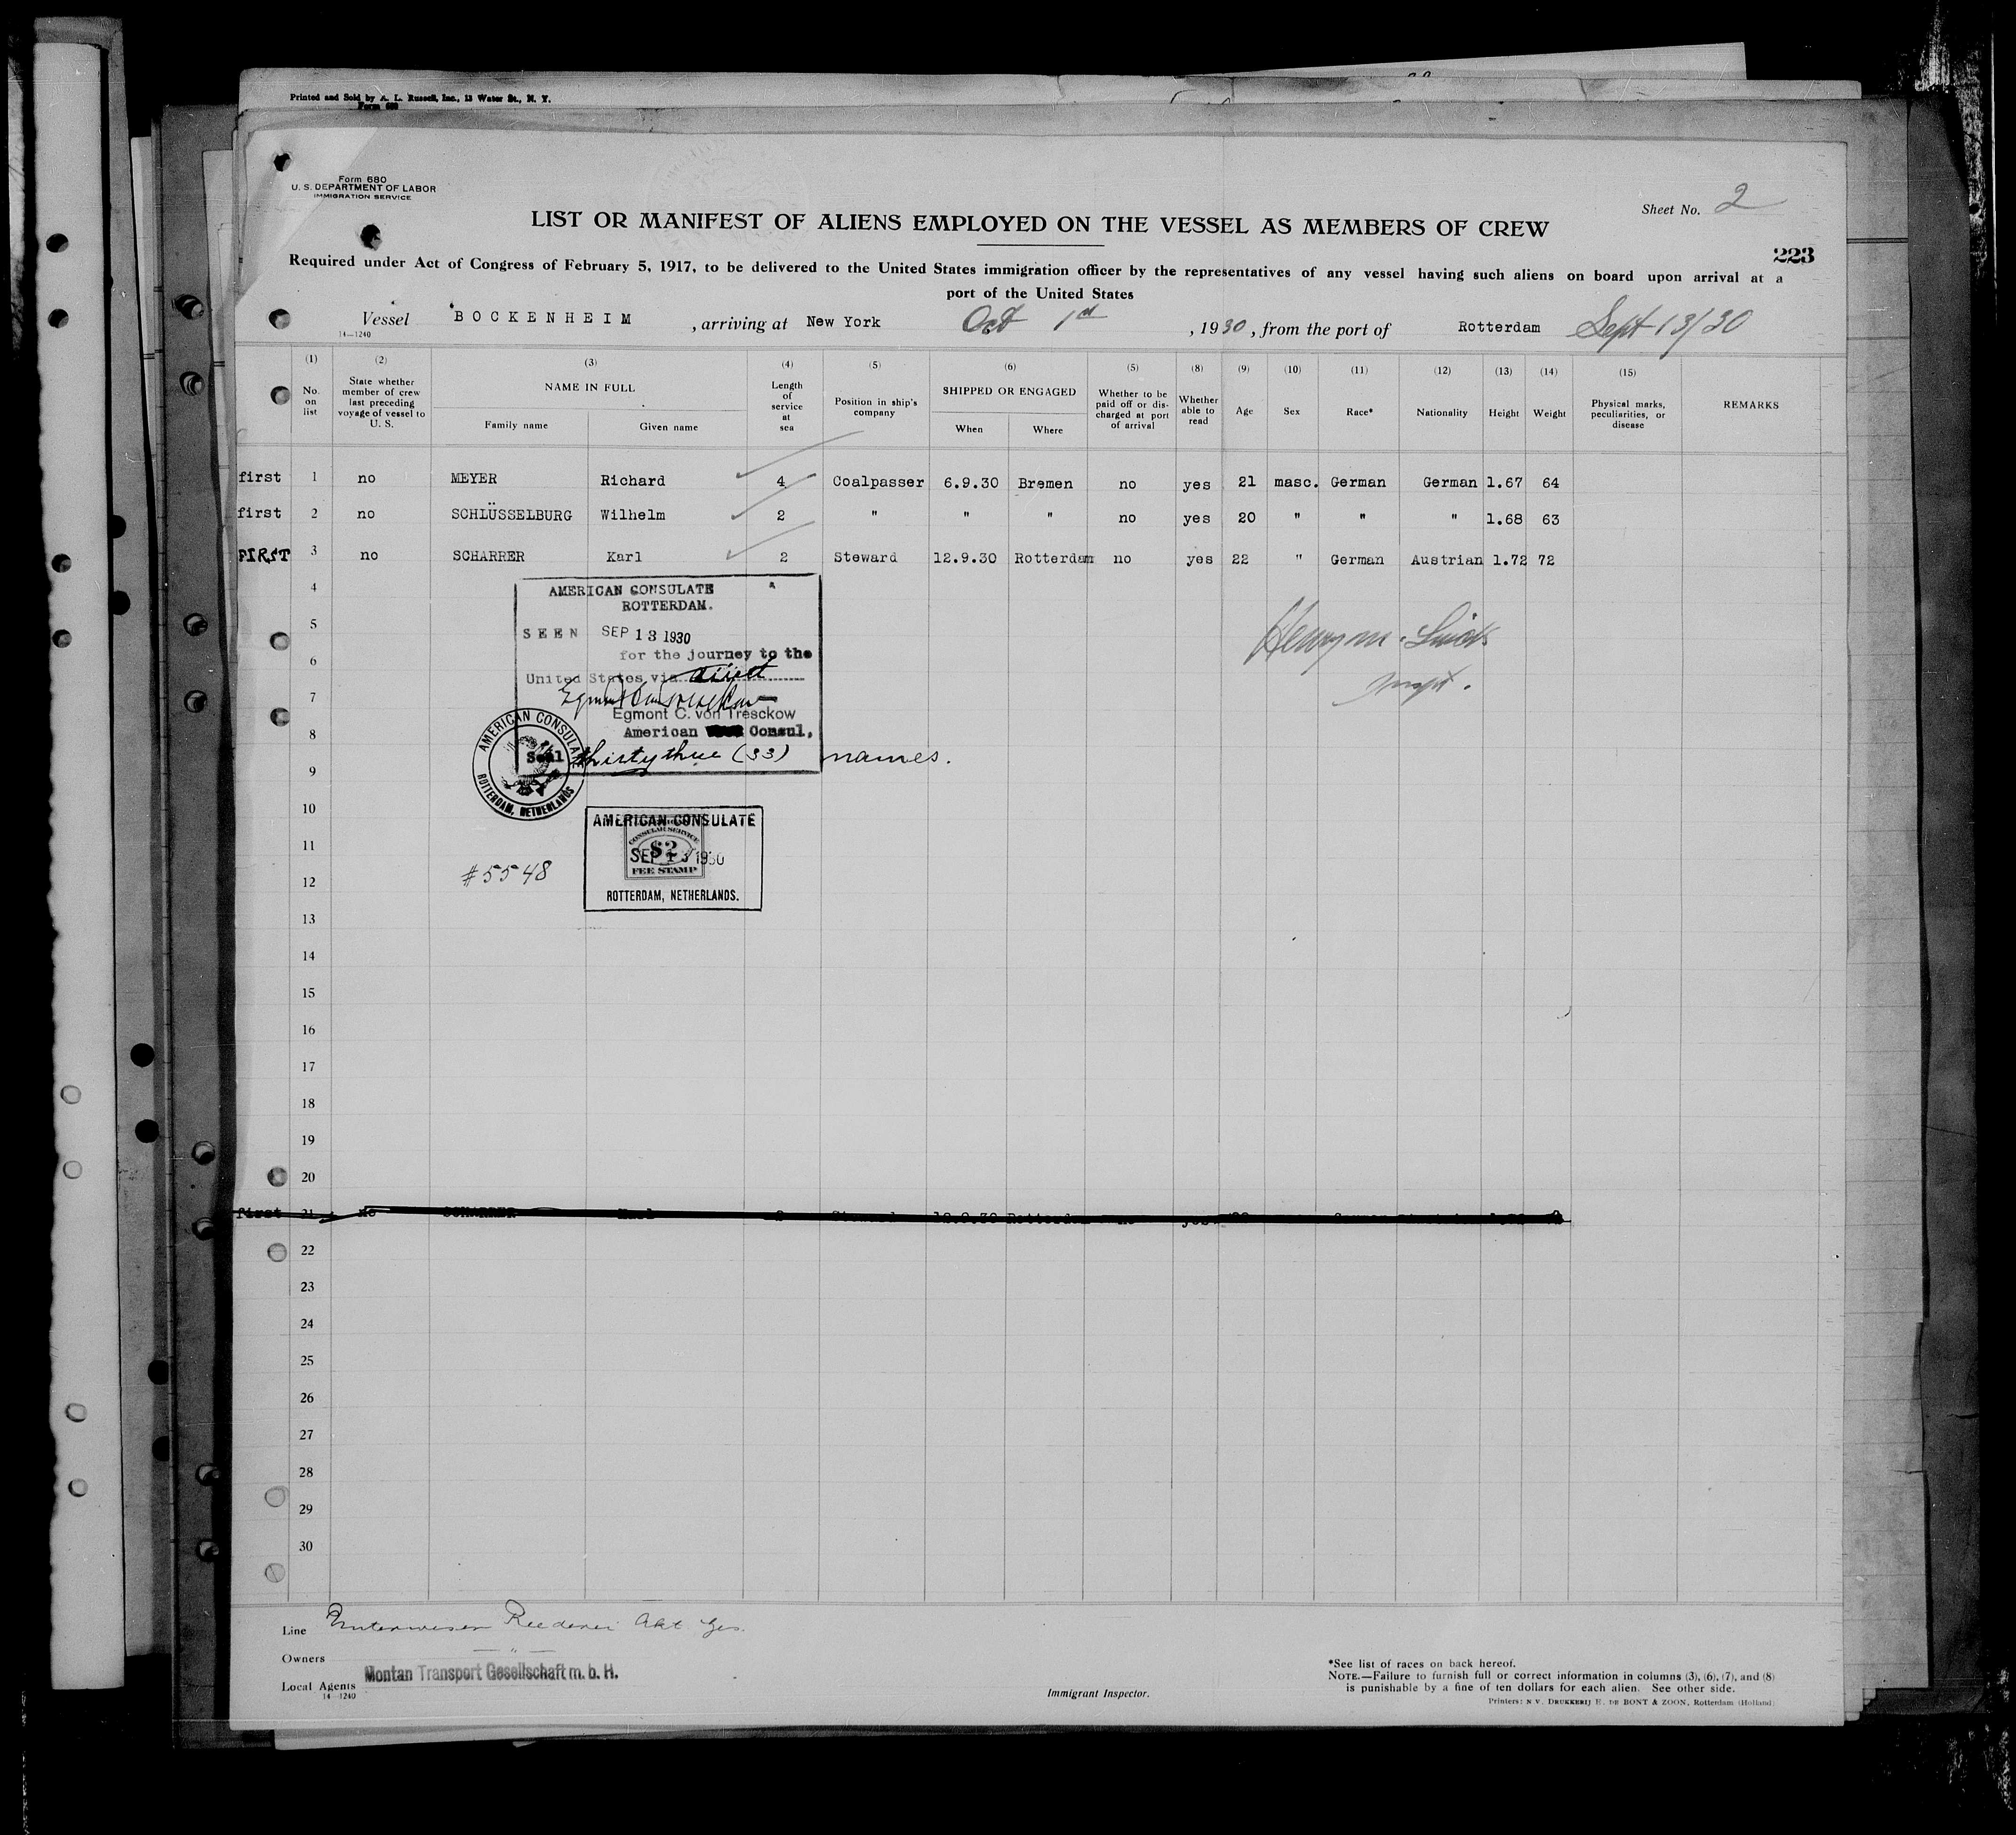 Printed and Sold by A. L. Russell, Inc., 13 Water St., N. Y.
Form 680
Form 680
U. S. DEPARTMENT OF LABOR
IMMIGRATION SERVICE
Sheet No. 2
LIST OR MANIFEST OF ALIENS EMPLOYED ON THE VESSEL AS MEMBERS OF CREW
223
Required under Act of Congress of February 5, 1917, to be delivered to the United States immigration officer by the representatives of any vessel having such aliens on board upon arrival at a
port of the United States
Vessel BOCKENHEIM , arriving at New York Oct 1st , 1930 , from the port of Rotterdam Sept 13/30
14—1240
(1) (2) (3) (4) (5) (6) (5) (8) (9) (10) (11) (12) (13) (14) (15)
No. on list State whether member of crew last preceding voyage of vessel to U. S. NAME IN FULL Family name Given name Length of service at sea Position in ship's company SHIPPED OR ENGAGED When Where Whether to be paid off or discharged at port of arrival Whether able to read Age Sex Race* Nationality Height Weight Physical marks, peculiarities, or disease REMARKS
first 1 no MEYER Richard 4 Coalpasser 6.9.30 Bremen no yes 21 masc. German German 1.67 64
first 2 no SCHLÜSSELBURG Wilhelm 2 " " " no yes 20 " " " 1.68 63
FIRST 3 no SCHARRER Karl 2 Steward 12.9.30 Rotterdam no yes 22 " German Austrian 1.72 72
4
AMERICAN CONSULATE
ROTTERDAM.
5
SEEN SEP 13 1930
for the journey to the
6
United States via direct
7
Egmont C. von Tresckow
Egmont C. von Tresckow
8
American Consul,
Seal thirty three (33) names.
9
AMERICAN CONSULATE
ROTTERDAM, NETHERLANDS
Henry m.
Inspt.
10
AMERICAN CONSULATE
11
CONSULAR SERVICE
$2
SEP 13 1930
FEE STAMP
ROTTERDAM, NETHERLANDS.
#5548
12
13
14
15
16
17
18
19
20
first 21 no SCHARRER Karl 2 Steward 12.9.30 Rotterdam no yes
22
23
24
25
26
27
28
29
30
Line Unterweser Reederei Akt Ges.
Owners — " —
Local Agents Montan Transport Gesellschaft m. b. H.
14—1240
Immigrant Inspector.
*See list of races on back hereof.
NOTE.—Failure to furnish full or correct information in columns (3), (6), (7), and (8)
is punishable by a fine of ten dollars for each alien. See other side.
Printers: N V. DRUKKERIJ H. DE BONT & ZOON, Rotterdam (Holland)